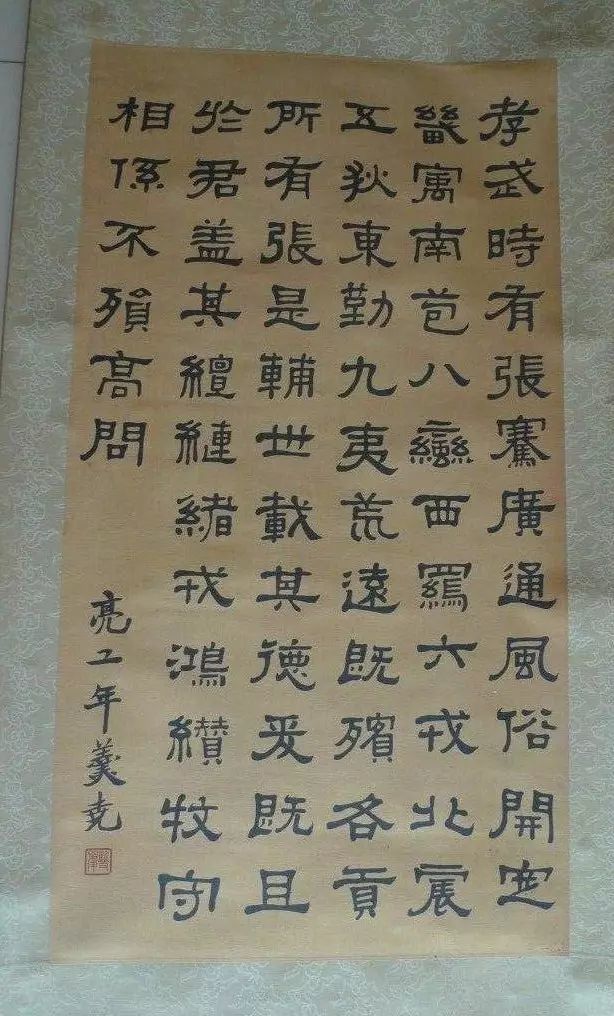 孝武時有張騫廣通風俗開定
畿寓南苞八蠻西羈六戎北震
五狄東勤九夷荒遠既殯各貢
所有張是輔世載其德爰既且
於君盖其繵縺緒戎鴻纘牧守
相係不殞高問
亮工年羹堯